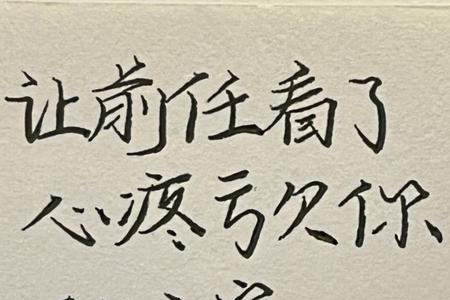 让前任看了
心疼亏欠你